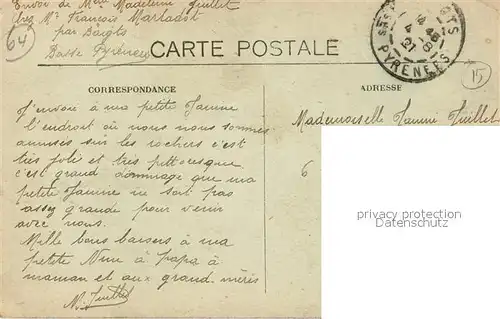 Envoi de Mme Madeleine Juillet
chez Mr François
par Baigts
Basses Pyrénées
64
CARTE POSTALE
BAIGTS
PYRENEES
15
CORRESPONDANCE
ADRESSE
J'envoie à ma petite Janine
l'endroit où nous nous sommes
amusés sur les rochers c'est
très joli et très pittoresque
c'est grand dommage que ma
petite Janine ne soit pas
assez grande pour venir
avec nous.
Mille bons baisers à ma
petite à papa à
maman et aux grand-mères
M. Juillet
Mademoiselle Janine Juillet
6
privacy protection
Datenschutz